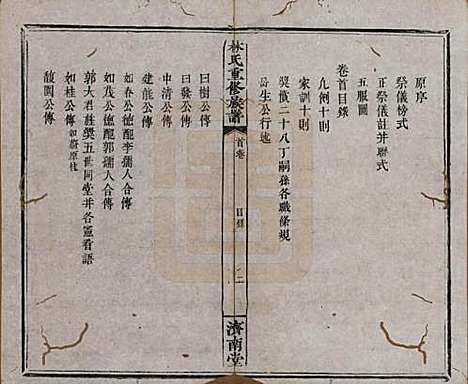 原序
祭儀榜式
正祭儀註并聯式
五服圖
卷首目錄
凡例十則
家訓十則
獎懲二十八丁嗣孫各職條規
生公行述
林氏重修族譜
首卷
目錄
二
濟南堂
曰樹公傳
曰發公傳
中清公傳
建能公傳
如春公德配李孺人合傳
如茂公德配郭孺人合傳
郭大君旌獎五世同堂并各憲看語
如桂公傳
馥園公傳